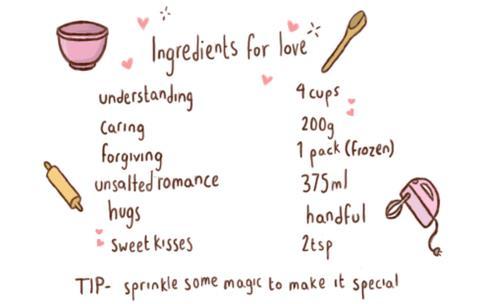 Ingredients for love
understanding 4 cups
caring 200g
forgiving 1 pack (frozen)
unsalted romance 375ml
hugs handful
sweet kisses 2tsp
TIP- sprinkle some magic to make it special